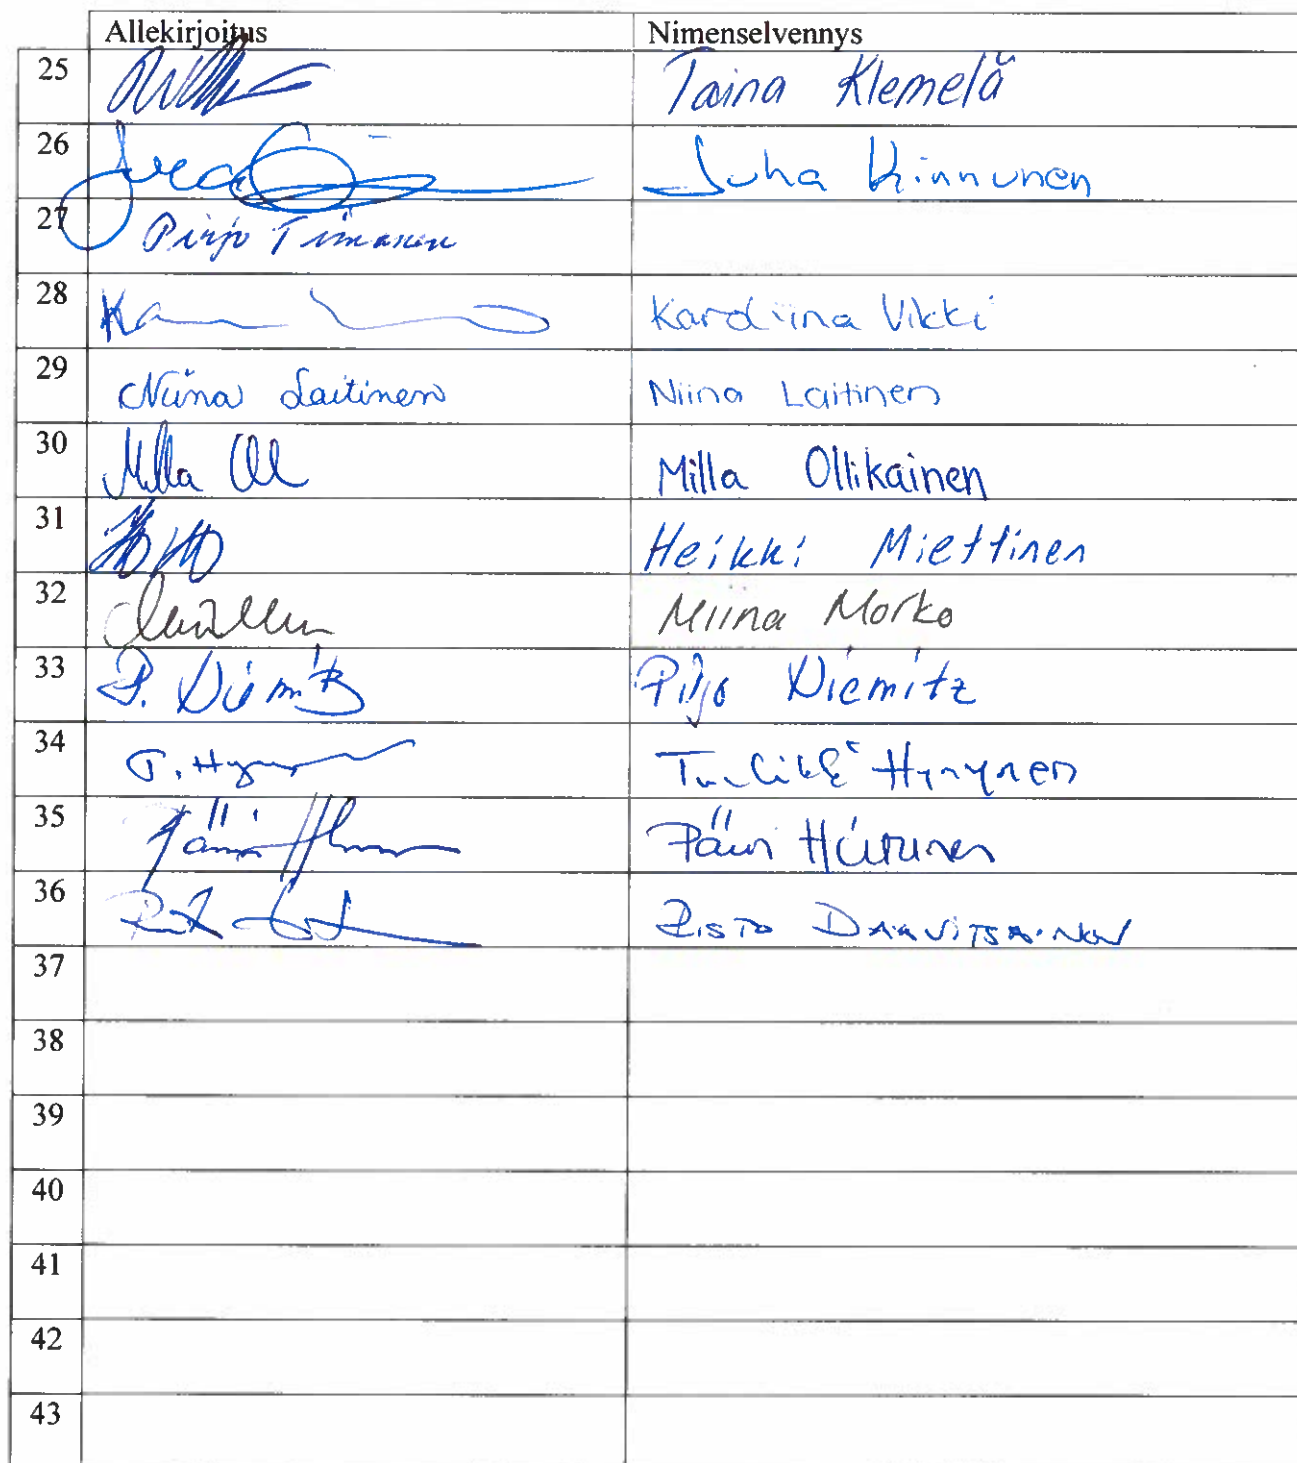 Allekirjoitus Nimenselvennys
25 Taina Klemelä
26 Juha Kinnunen
27 Pirjo Timonen
28 Karoliina Vikki
29 Niina Laitinen Niina Laitinen
30 Milla Oll Milla Ollikainen
31 Heikki Miettinen
32 Miina Morko
33 P. Niemitz Pirjo Niemitz
34 T. Hyn Tuulikki Hynynen
35 Päivi Päivi
36 Risto DAAVITSAINEN
37
38
39
40
41
42
43